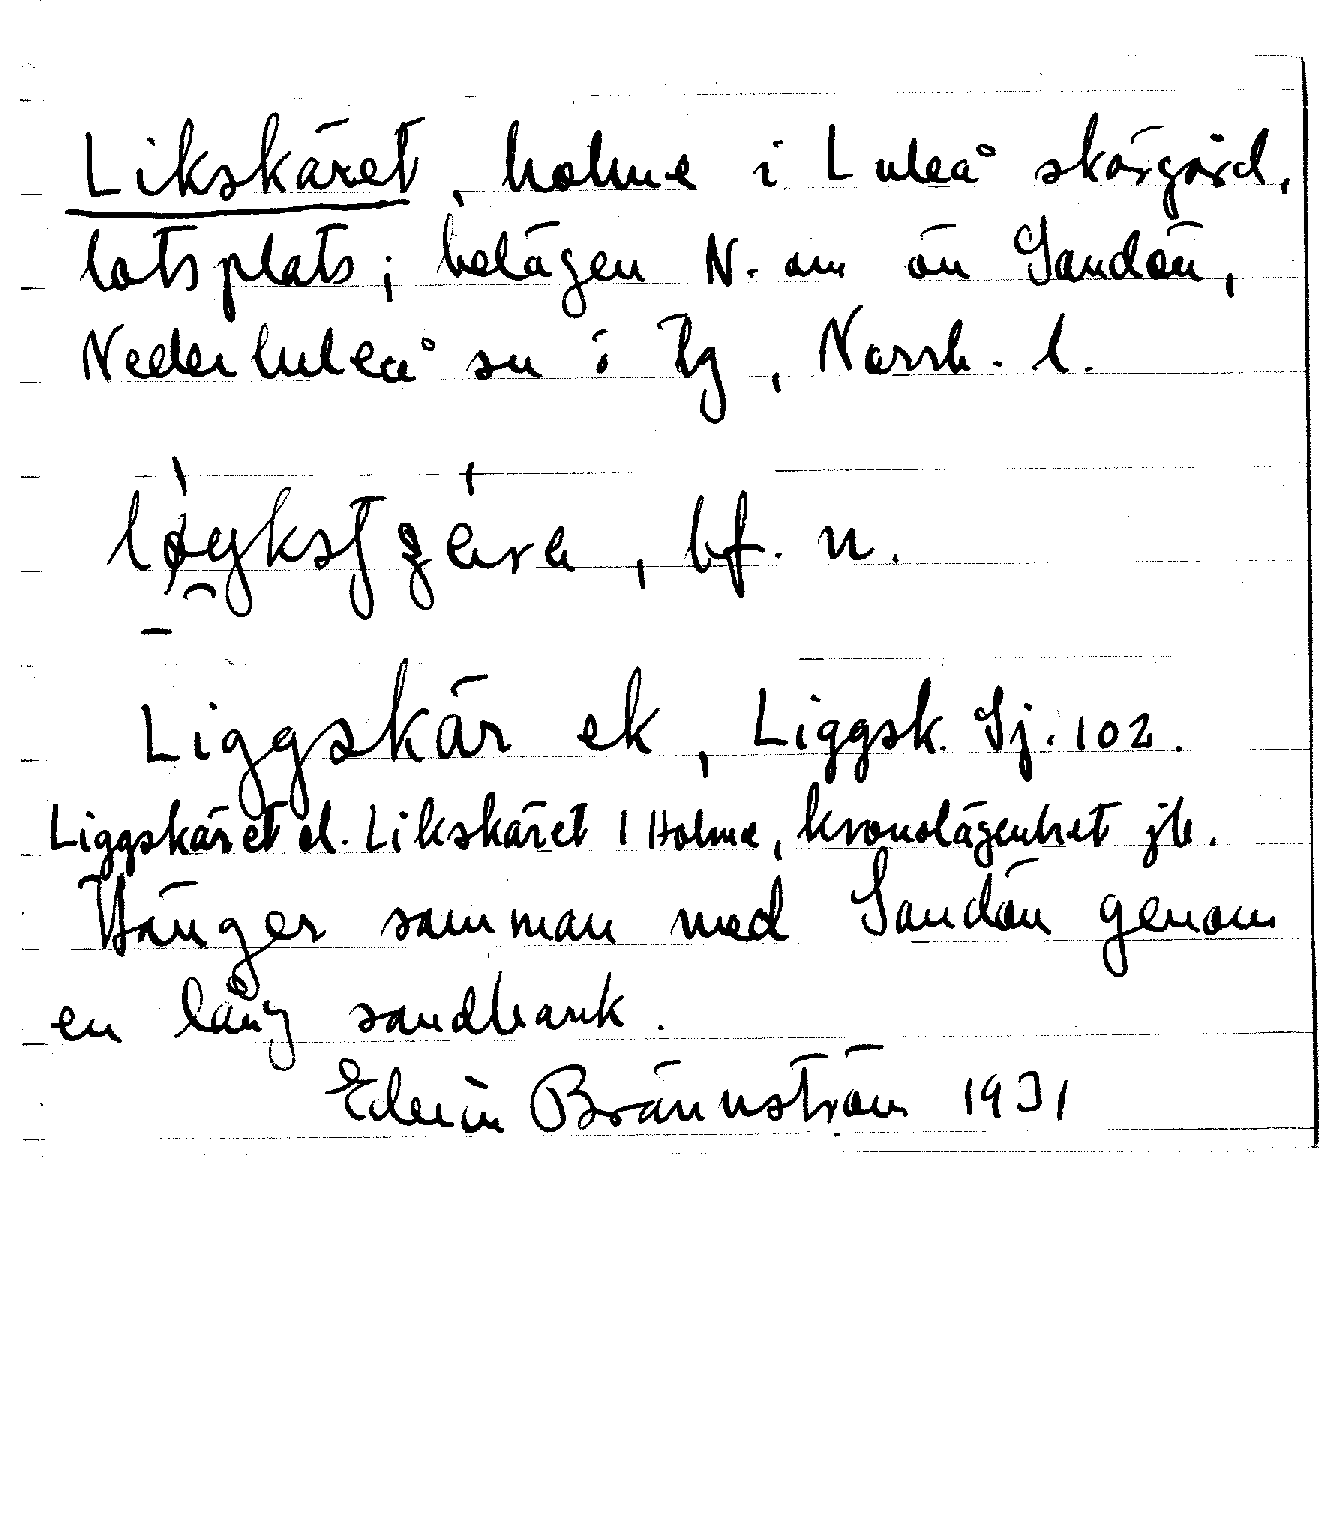 Likskäret, holme i Luleå skärgård,
lotsplats; belägen N. om ön Sandön,
Nederluleå sn i Hg, Norrb. l.
bf. n.
Liggskär ek, Liggsk. Sj. 102.
Liggskäret el. Likskäret 1 Holme, kronolägenhet jb.
Hänger samman med Sandön genom
en lång sandbank.
Edvin Brännström 1931